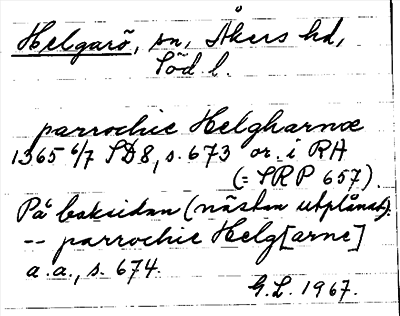 Helgarö, sn, Åkers hd,
Söd l.
parrochie Helgharnæ
1365 6/7 SD8, s. 673 or. i RA
(= SRP 657).
På baksidan (nästan utplånat):
-- parrochie Helg[arne]
a.a., s. 674.
G.L. 1967.